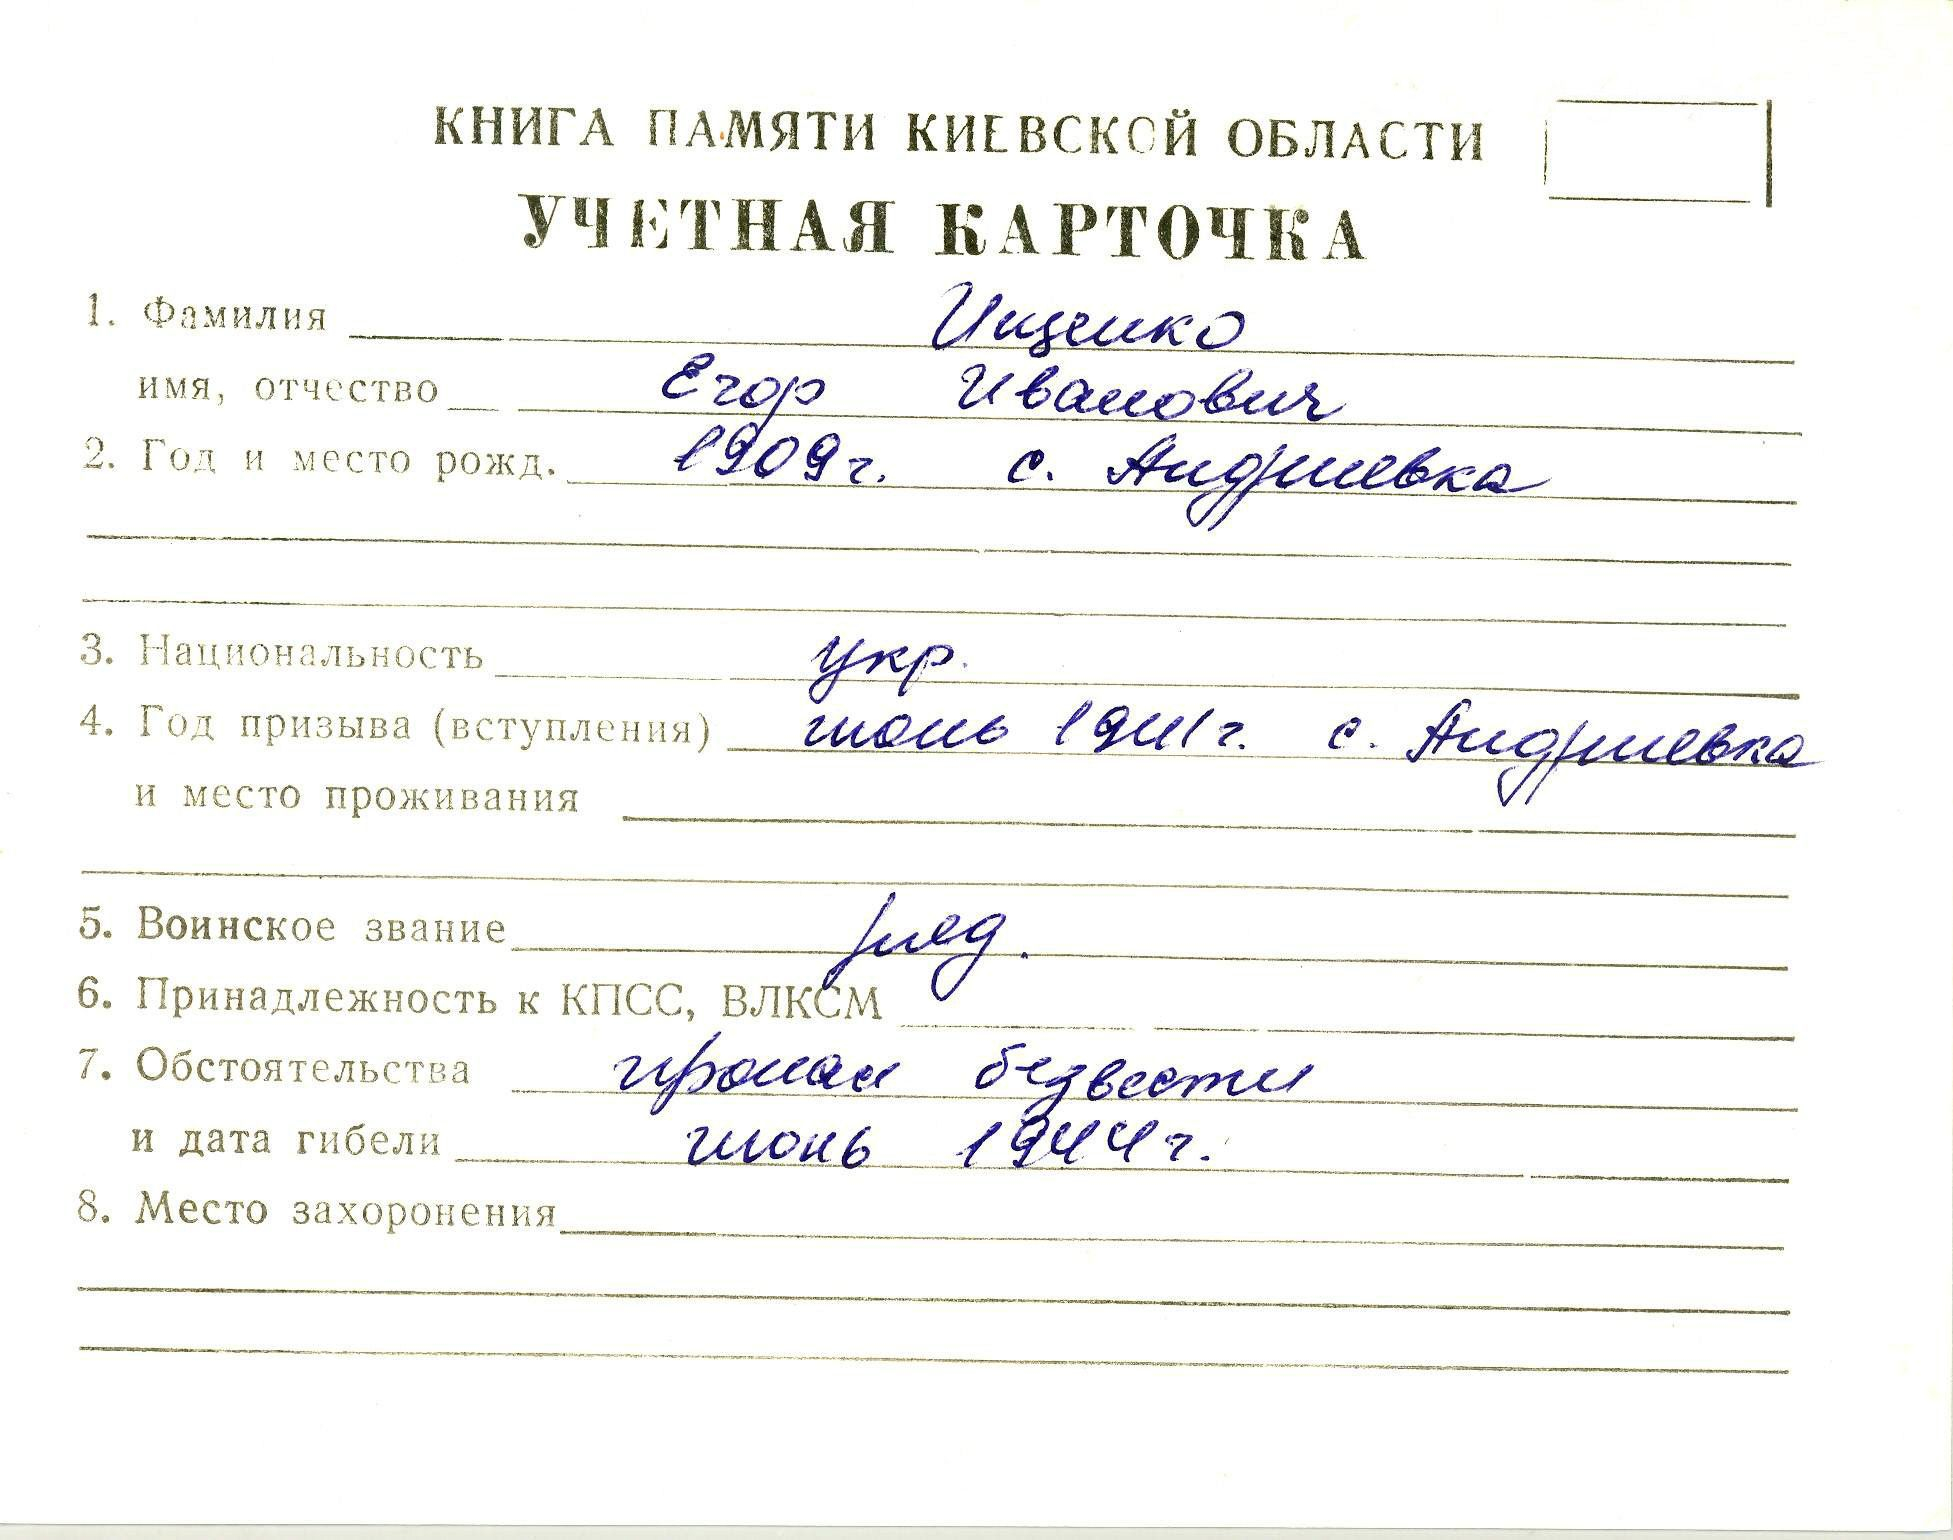 КНИГА ПАМЯТИ КИЕВСКОЙ ОБЛАСТИ
УЧЕТНАЯ КАРТОЧКА
1. Фамилия Ищенко
имя, отчество Егор Иванович
2. Год и место рожд. 1909 г. с. Андриевка
3. Национальность укр.
4. Год призыва (вступления) июнь 1941 г. с. Андриевка
и место проживания
5. Воинское звание ряд.
6. Принадлежность к КПСС, ВЛКСМ
7. Обстоятельства пропал безвести
и дата гибели июнь 1944 г.
8. Место захоронения